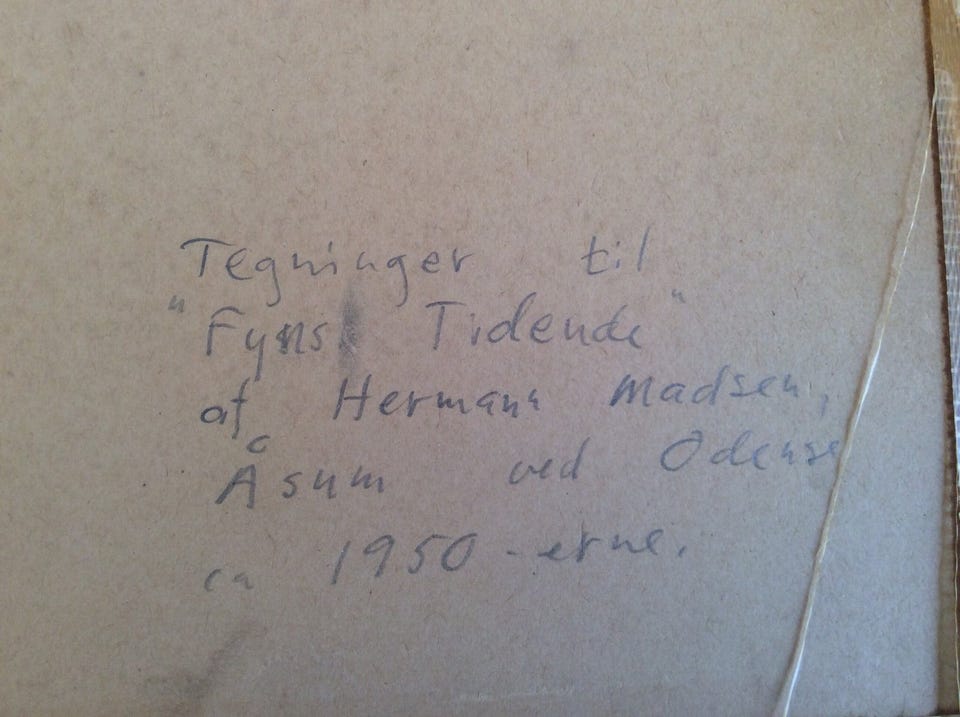 Tegninger til
"Fyns Tidende"
af Hermann Madsen,
Åsum ved Odense
ca 1950-erne.